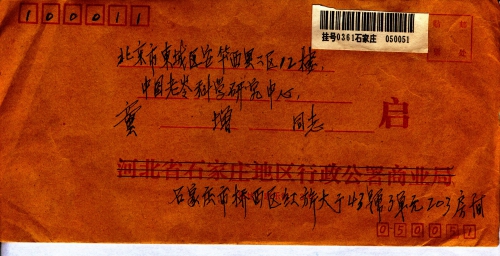 100011
挂号0361石家庄 050051
北京市東城区安华西里二区12楼,
中国老龄科学研究中心,
同志 启
河北省石家庄地区行政公署商业局
石家庄市桥西区红旗大于43號3单元203房间
050051